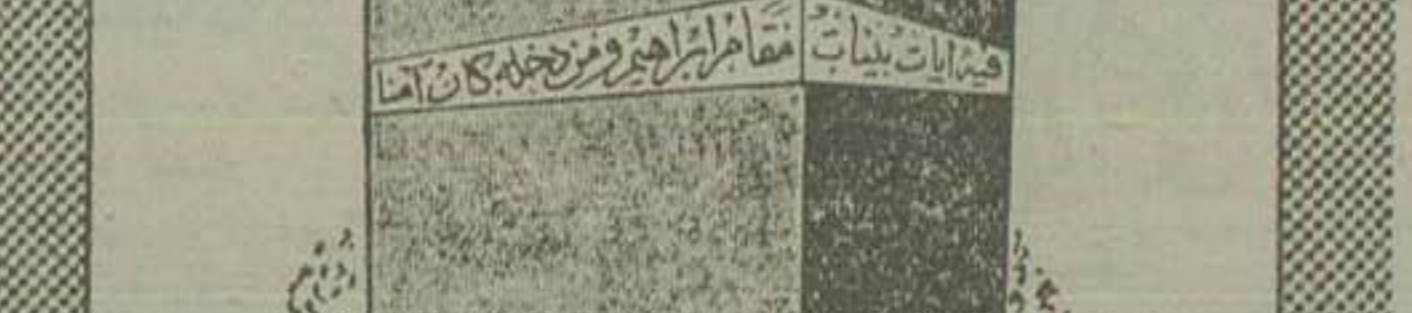 فيه آيات بينات مقام ابراهيم ومن دخله كان آمنا